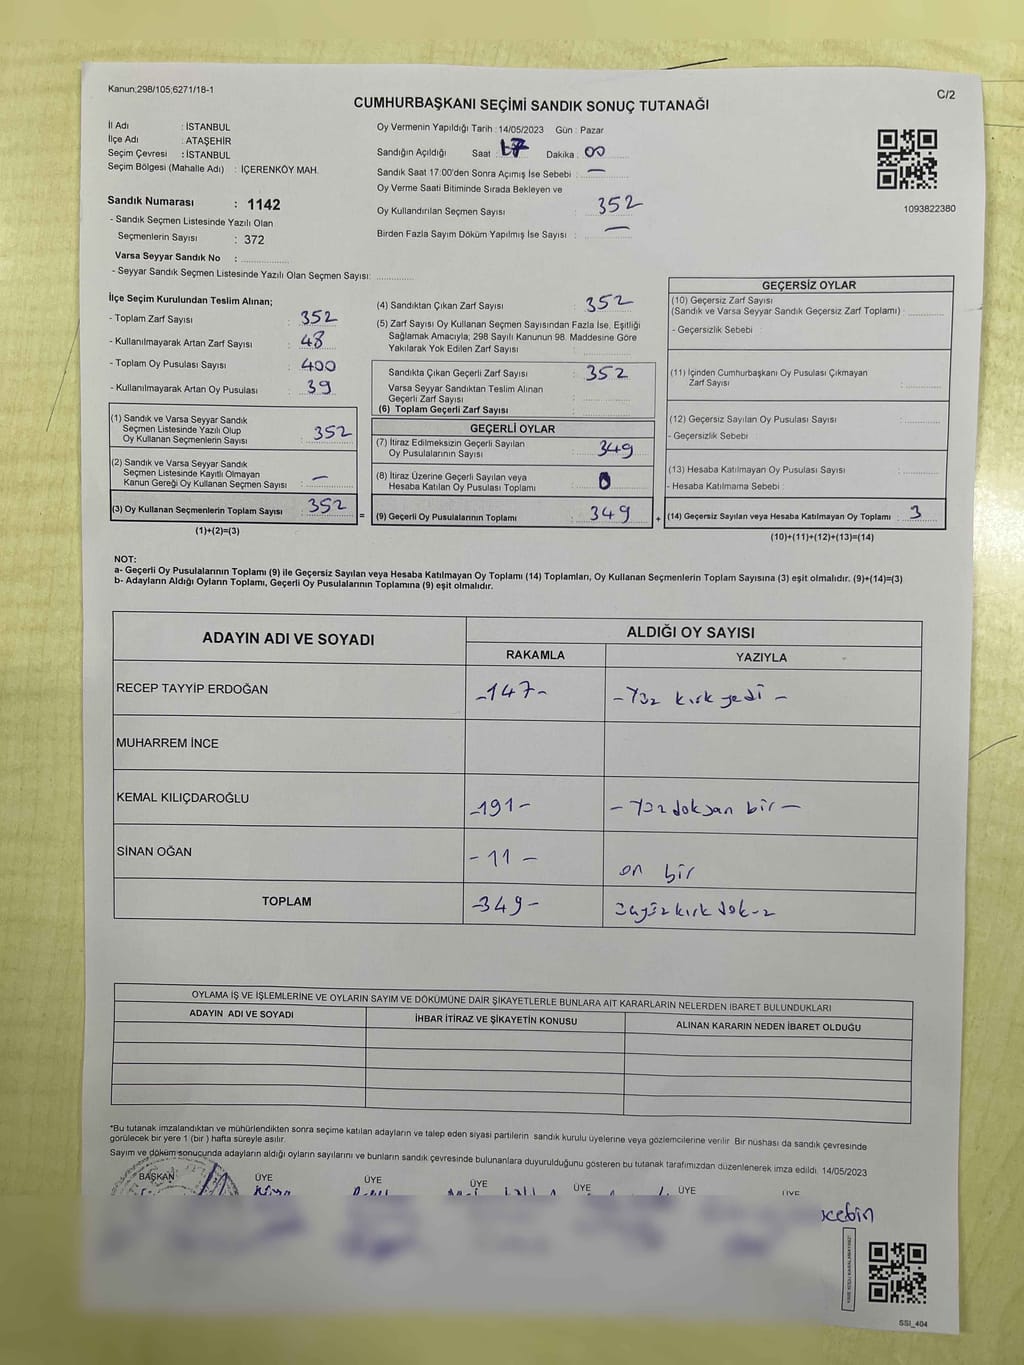 Kanun;298/105;6271/18-1
C/2
CUMHURBAŞKANI SEÇİMİ SANDIK SONUÇ TUTANAĞI
İl Adı : İSTANBUL
İlçe Adı : ATAŞEHİR
Seçim Çevresi : İSTANBUL
Seçim Bölgesi (Mahalle Adı) : İÇERENKÖY MAH.
Sandık Numarası : 1142
- Sandık Seçmen Listesinde Yazılı Olan
Seçmenlerin Sayısı : 372
Varsa Seyyar Sandık No :
- Seyyar Sandık Seçmen Listesinde Yazılı Olan Seçmen Sayısı:
Oy Vermenin Yapıldığı Tarih : 14/05/2023 Gün : Pazar
Sandığın Açıldığı Saat : 17 Dakika : 00
Sandık Saat 17:00'den Sonra Açımış İse Sebebi : —
Oy Verme Saati Bitiminde Sırada Bekleyen ve
Oy Kullandırılan Seçmen Sayısı : 352
Birden Fazla Sayım Döküm Yapılmış İse Sayısı : —
1093822380
İlçe Seçim Kurulundan Teslim Alınan;
- Toplam Zarf Sayısı : 352
- Kullanılmayarak Artan Zarf Sayısı : 48
- Toplam Oy Pusulası Sayısı : 400
- Kullanılmayarak Artan Oy Pusulası : 39
(1) Sandık ve Varsa Seyyar Sandık
Seçmen Listesinde Yazılı Olup
Oy Kullanan Seçmenlerin Sayısı : 352
(2) Sandık ve Varsa Seyyar Sandık
Seçmen Listesinde Kayıtlı Olmayan
Kanun Gereği Oy Kullanan Seçmen Sayısı : —
(3) Oy Kullanan Seçmenlerin Toplam Sayısı : 352
(1)+(2)=(3)
(4) Sandıktan Çıkan Zarf Sayısı : 352
(5) Zarf Sayısı Oy Kullanan Seçmen Sayısından Fazla İse, Eşitliği
Sağlamak Amacıyla; 298 Sayılı Kanunun 98. Maddesine Göre
Yakılarak Yok Edilen Zarf Sayısı :
Sandıkta Çıkan Geçerli Zarf Sayısı : 352
Varsa Seyyar Sandıktan Teslim Alınan
Geçerli Zarf Sayısı :
(6) Toplam Geçerli Zarf Sayısı :
GEÇERLİ OYLAR
(7) İtiraz Edilmeksizin Geçerli Sayılan
Oy Pusulalarının Sayısı : 349
(8) İtiraz Üzerine Geçerli Sayılan veya
Hesaba Katılan Oy Pusulası Toplamı : 0
= (9) Geçerli Oy Pusulalarının Toplamı : 349
GEÇERSİZ OYLAR
(10) Geçersiz Zarf Sayısı
(Sandık ve Varsa Seyyar Sandık Geçersiz Zarf Toplamı) :
- Geçersizlik Sebebi :
(11) İçinden Cumhurbaşkanı Oy Pusulası Çıkmayan
Zarf Sayısı :
(12) Geçersiz Sayılan Oy Pusulası Sayısı :
- Geçersizlik Sebebi
(13) Hesaba Katılmayan Oy Pusulası Sayısı :
- Hesaba Katılmama Sebebi :
+ (14) Geçersiz Sayılan veya Hesaba Katılmayan Oy Toplamı : 3
(10)+(11)+(12)+(13)=(14)
NOT:
a- Geçerli Oy Pusulalarının Toplamı (9) ile Geçersiz Sayılan veya Hesaba Katılmayan Oy Toplamı (14) Toplamları, Oy Kullanan Seçmenlerin Toplam Sayısına (3) eşit olmalıdır. (9)+(14)=(3)
b- Adayların Aldığı Oyların Toplamı, Geçerli Oy Pusulalarının Toplamına (9) eşit olmalıdır.
ADAYIN ADI VE SOYADI
ALDIĞI OY SAYISI
RAKAMLA YAZIYLA
RECEP TAYYİP ERDOĞAN -147- -Yüz kırk yedi -
MUHARREM İNCE
KEMAL KILIÇDAROĞLU -191- - Yüz doksan bir -
SİNAN OĞAN - 11 - on bir
TOPLAM -349- üçyüz kırk dokuz
OYLAMA İŞ VE İŞLEMLERİNE VE OYLARIN SAYIM VE DÖKÜMÜNE DAİR ŞİKAYETLERLE BUNLARA AİT KARARLARIN NELERDEN İBARET BULUNDUKLARI
ADAYIN ADI VE SOYADI İHBAR İTİRAZ VE ŞİKAYETİN KONUSU ALINAN KARARIN NEDEN İBARET OLDUĞU
*Bu tutanak imzalandıktan ve mühürlendikten sonra seçime katılan adayların ve talep eden siyasi partilerin sandık kurulu üyelerine veya gözlemcilerine verilir. Bir nüshası da sandık çevresinde
görülecek bir yere 1 (bir) hafta süreyle asılır.
Sayım ve döküm sonucunda adayların aldığı oyların sayılarını ve bunların sandık çevresinde bulunanlara duyurulduğunu gösteren bu tutanak tarafımızdan düzenlenerek imza edildi. 14/05/2023
BAŞKAN ÜYE ÜYE ÜYE ÜYE ÜYE ÜYE
SSI_404